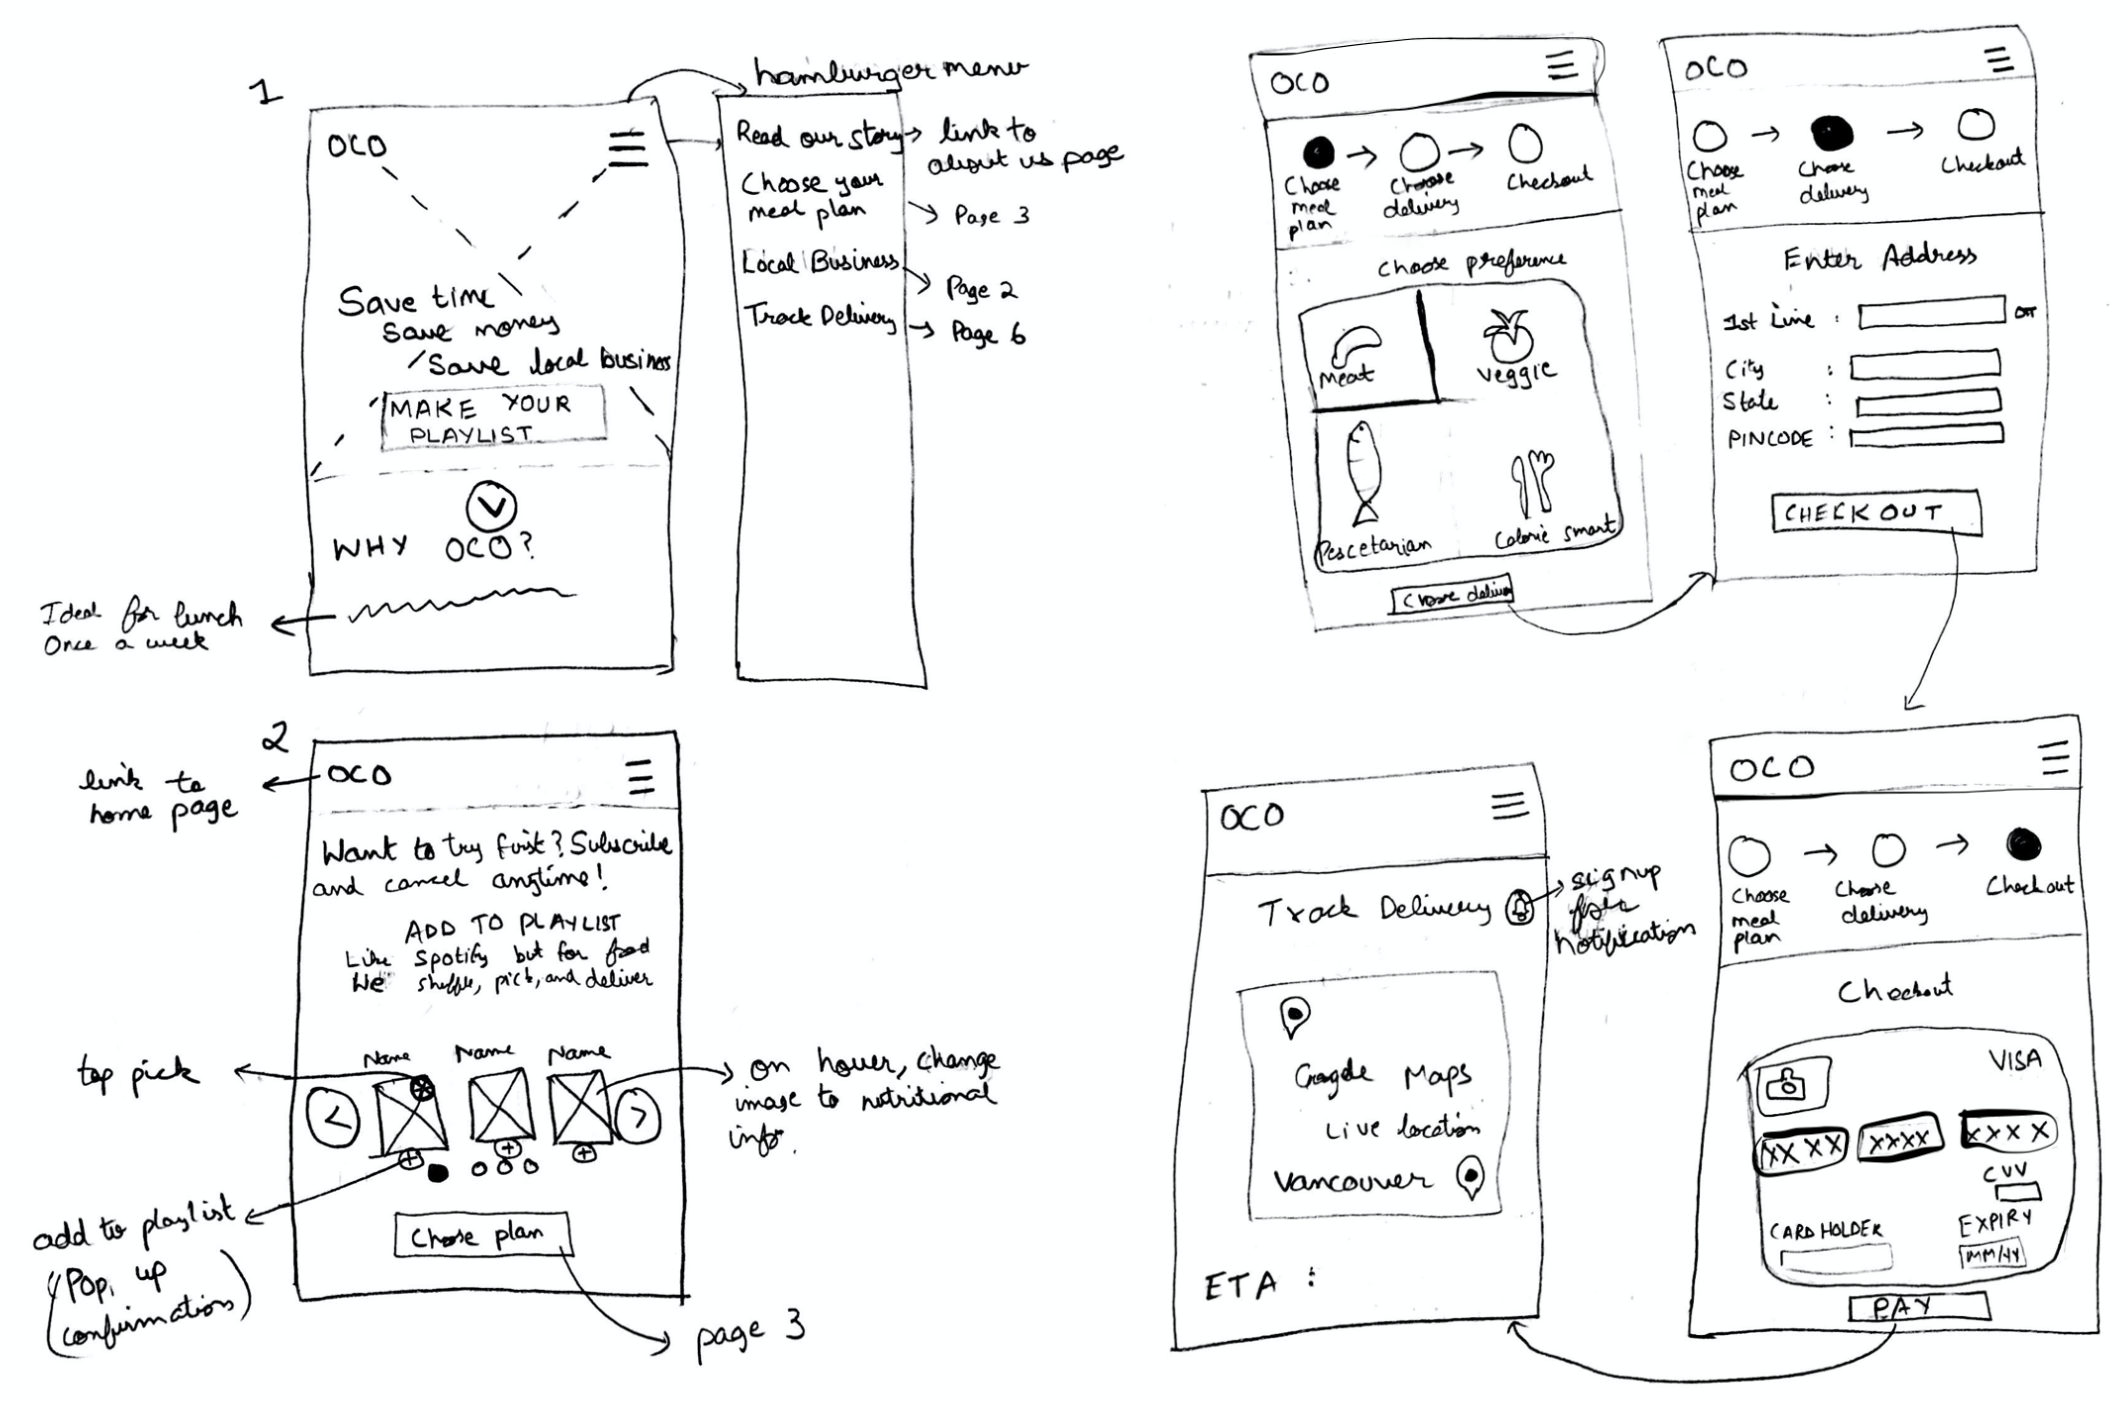 1
OCO
Save time
Save money
Save local business
MAKE YOUR
PLAYLIST
WHY OCO?
Ideal for lunch
Once a week
hamburger menu
Read our story
link to
about us page
Choose your
meal plan
Page 3
Local Business
Page 2
Track Delivery
Page 6
2
OCO
link to
home page
Want to try first? Subscribe
and cancel anytime!
ADD TO PLAYLIST
Like Spotify but for food
We shuffle, pick, and deliver
Name Name Name
top pick
< >
on hover, change
image to nutritional
info.
add to playlist
(Pop up
confirmation)
Choose plan
page 3
OCO
Choose
meal
plan
Choose
delivery
Checkout
Choose preference
Meat
Veggie
Pescetarian
Calorie smart
Choose delivery
OCO
Choose
meal
plan
Choose
delivery
Checkout
Enter Address
1st Line :
City :
State :
PINCODE :
CHECKOUT
OCO
Choose
meal
plan
Choose
delivery
Checkout
Checkout
VISA
XXXX XXXX XXXX
CVV
CARD HOLDER
EXPIRY
MM/YY
PAY
OCO
Track Delivery
signup
for
notification
Google Maps
Live location
Vancouver
ETA :